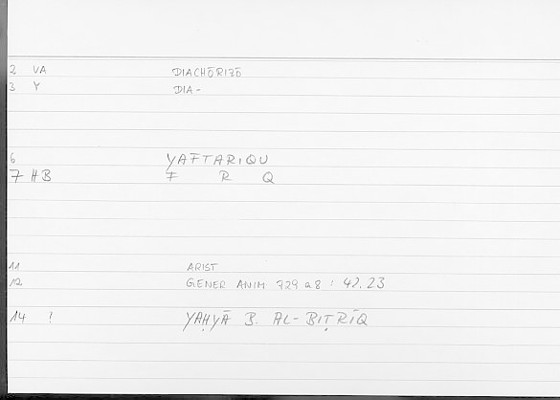 2 VA DIACHŌRIZŌ
3 Y DIA-
6 YAFTARIQU
7 HB F R Q
11 ARIST
12 GENER ANIM 729 a 8 : 42.23
14 ! YAḤYĀ B. AL-BIṬRĪQ